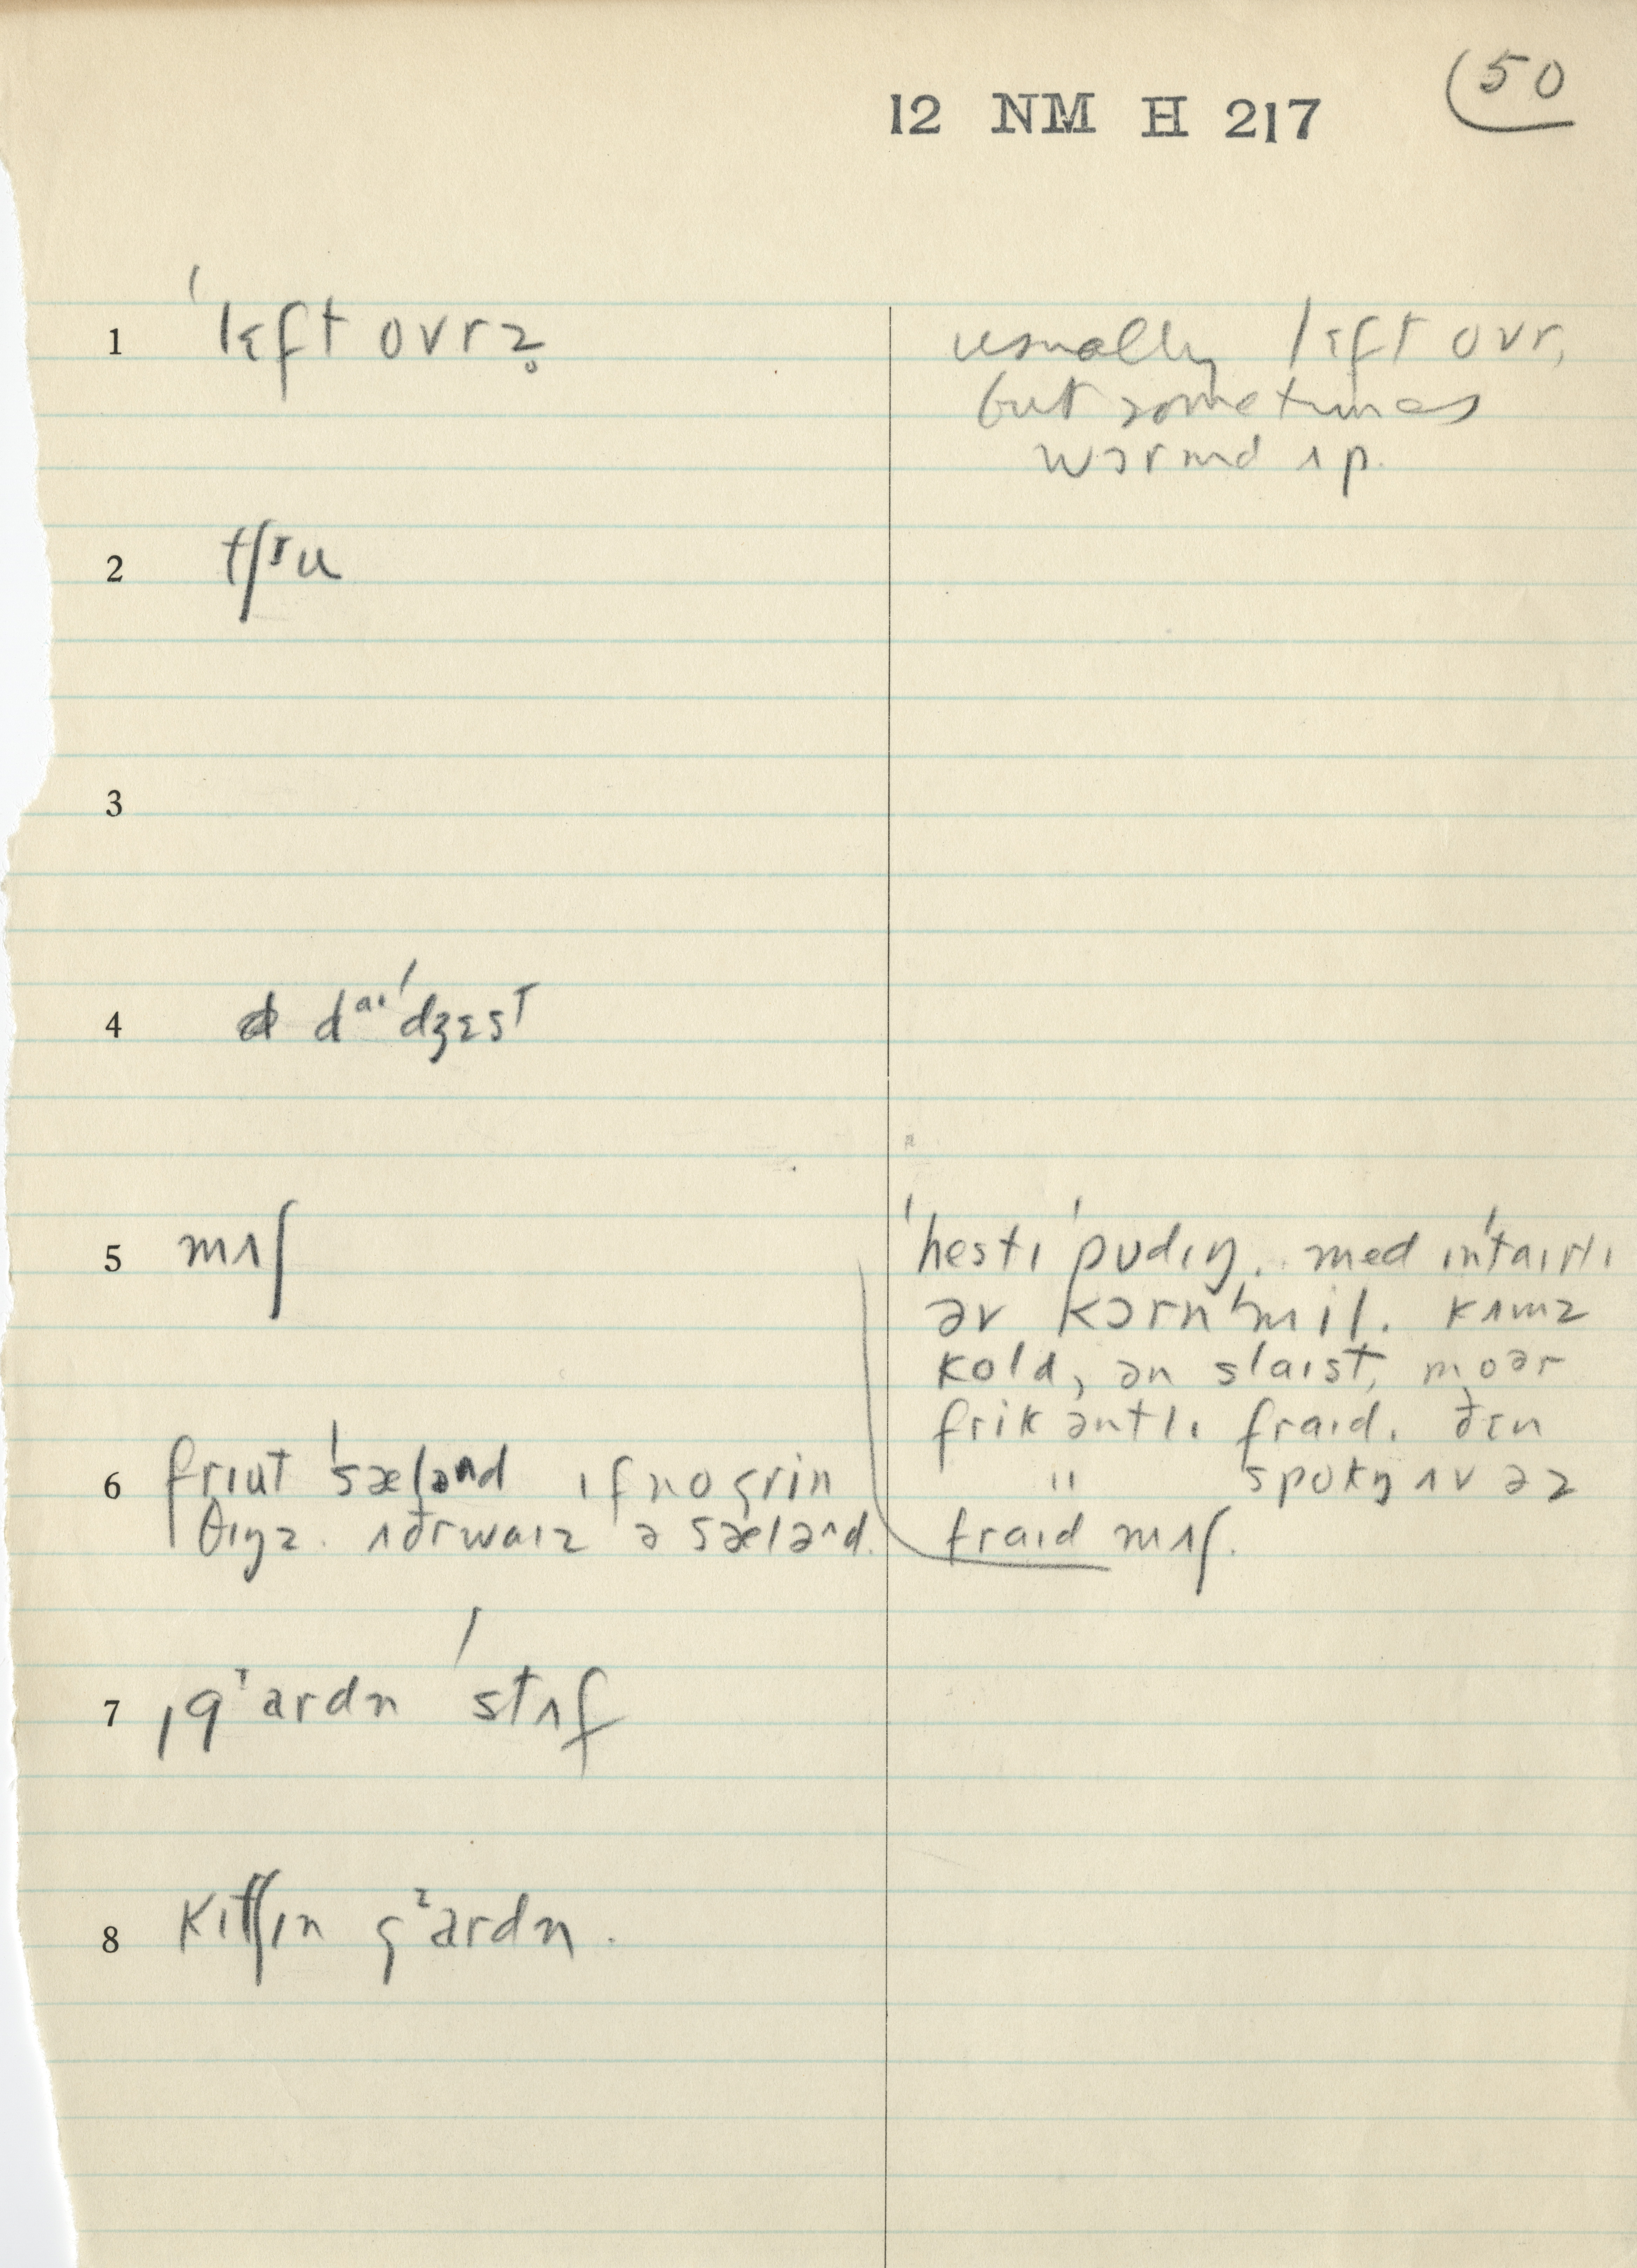 12 NM H 217
50
1 ˈlɛft ovrz̥
usually lɛft ovr,
but sometimes
wɔrmd ʌp.
2 tʃɪu
3
4 daɪˈdʒɛst
5 mʌʃ
ˈhestɪ ˈpudɪŋ. med ɪnˈtaɪrlɪ
əv kɔrnˈmil. kʌmz
kold, ən slaɪst, moər
frikəntlɪ fraɪd. ðɛn
" spokŋ ʌv əz
fraɪd mʌʃ.
6 frɪut ˈsæləd ɪf no grin
θɪŋz. ʌðrwaɪz ə sæləd.
7 ˌgᶦardn ˈstʌf
8 kɪtʃɪn gᶦardn.